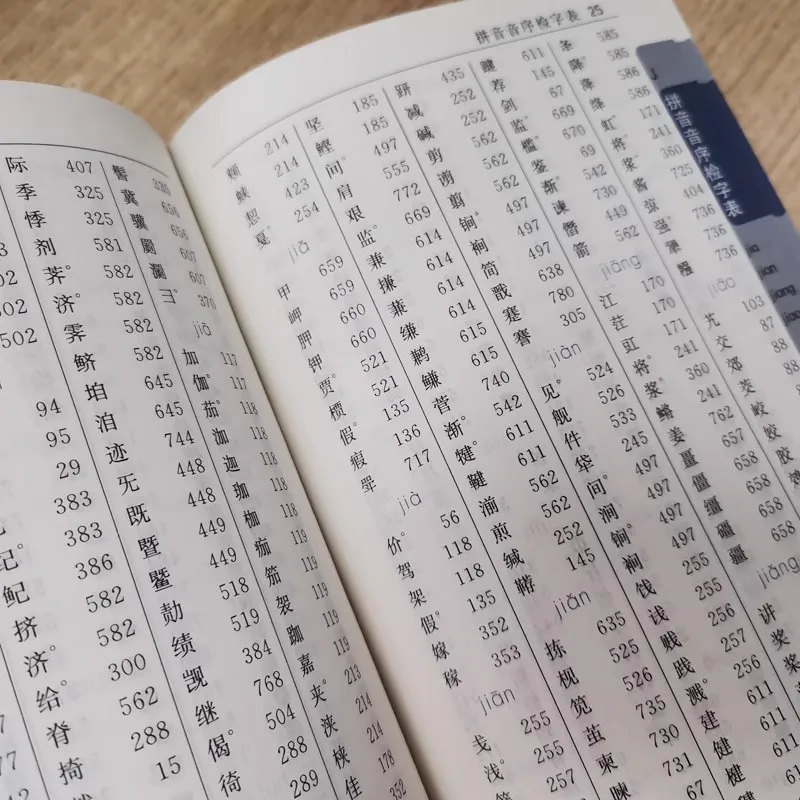 502
502
94
95
29
383
纪° 383
鱾 386
挤 582
济° 582
给° 300
脊 562
掎 288
15
际 407
季 325
悸 325
剂 581
荠° 582
济° 582
霁 582
鲚 582
垍 645
洎 645
迹 744
旡 448
既 448
暨 449
塈 449
勣 518
绩 519
觊 384
继 768
偈° 504
徛 288
289
髻
冀 656
骥 656
罽 607
瀱 607
彐° 370
jiā
加 117
伽° 117
茄° 118
泇 118
迦 118
珈 118
枷 118
痂 119
笳 119
袈 119
跏 119
嘉 119
夹° 213
浃 214
梜 214
佳 178
352
拼音音序检字表 25
颊 214
蛱 214
恝 423
戛° 254
jiǎ
甲 659
岬 659
胛 660
钾 660
贾° 521
槚 521
假° 135
瘕 136
斝 717
jià
价° 56
驾 118
架 118
假° 135
嫁 352
稼 353
jiān
戋 255
浅° 255
笺 257
坚 185
鲣 185
间° 497
肩 555
艰 772
监° 669
兼 614
搛 614
蒹 614
缣 614
鹣 615
鳒 615
菅 740
渐° 542
犍° 611
鞬 611
湔 562
煎 562
缄 252
鞯 145
jiǎn
拣 635
枧 525
笕 526
茧 735
柬 730
暕 731
67
趼 435
减 252
碱 252
剪 562
谫 562
翦 562
锏° 497
裥 497
简 497
戬 638
蹇 780
謇 305
jiàn
见° 524
舰 526
件 533
牮 245
间° 497
涧 497
锏° 497
饯 255
255
贱 256
践 257
溅° 256
建 611
健 611
踺 611
荐 145
剑 67
监° 669
槛° 670
鉴 69
渐° 542
谏 730
僭 449
箭 562
jiāng
江 170
茳 170
豇 171
将° 241
浆° 360
螀 241
姜 762
畺 657
僵 658
缰 658
礓 658
疆 658
jiǎng
讲
奖
桨
夅 585
降° 585
洚 586
绛 586
虹° 171
将° 241
浆° 360
酱 725
弶 404
强° 736
犟 736
糨 736
jiāo
艽 103
交 87
郊 88
茭 88
胶
拼音音序检字表